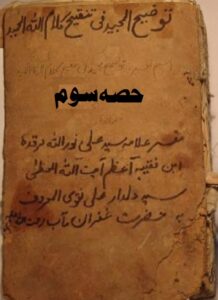 توضيح المجيد فی تنقیح كلام الله الحميد
حصہ سوم
مفسر علامہ سید علی نور اللہ مرقدہ
ابن فقیہ اعظم آیت اللہ العظمی
سید دلدار علی نقوی المعروف
بہ حضرت غفران مآب